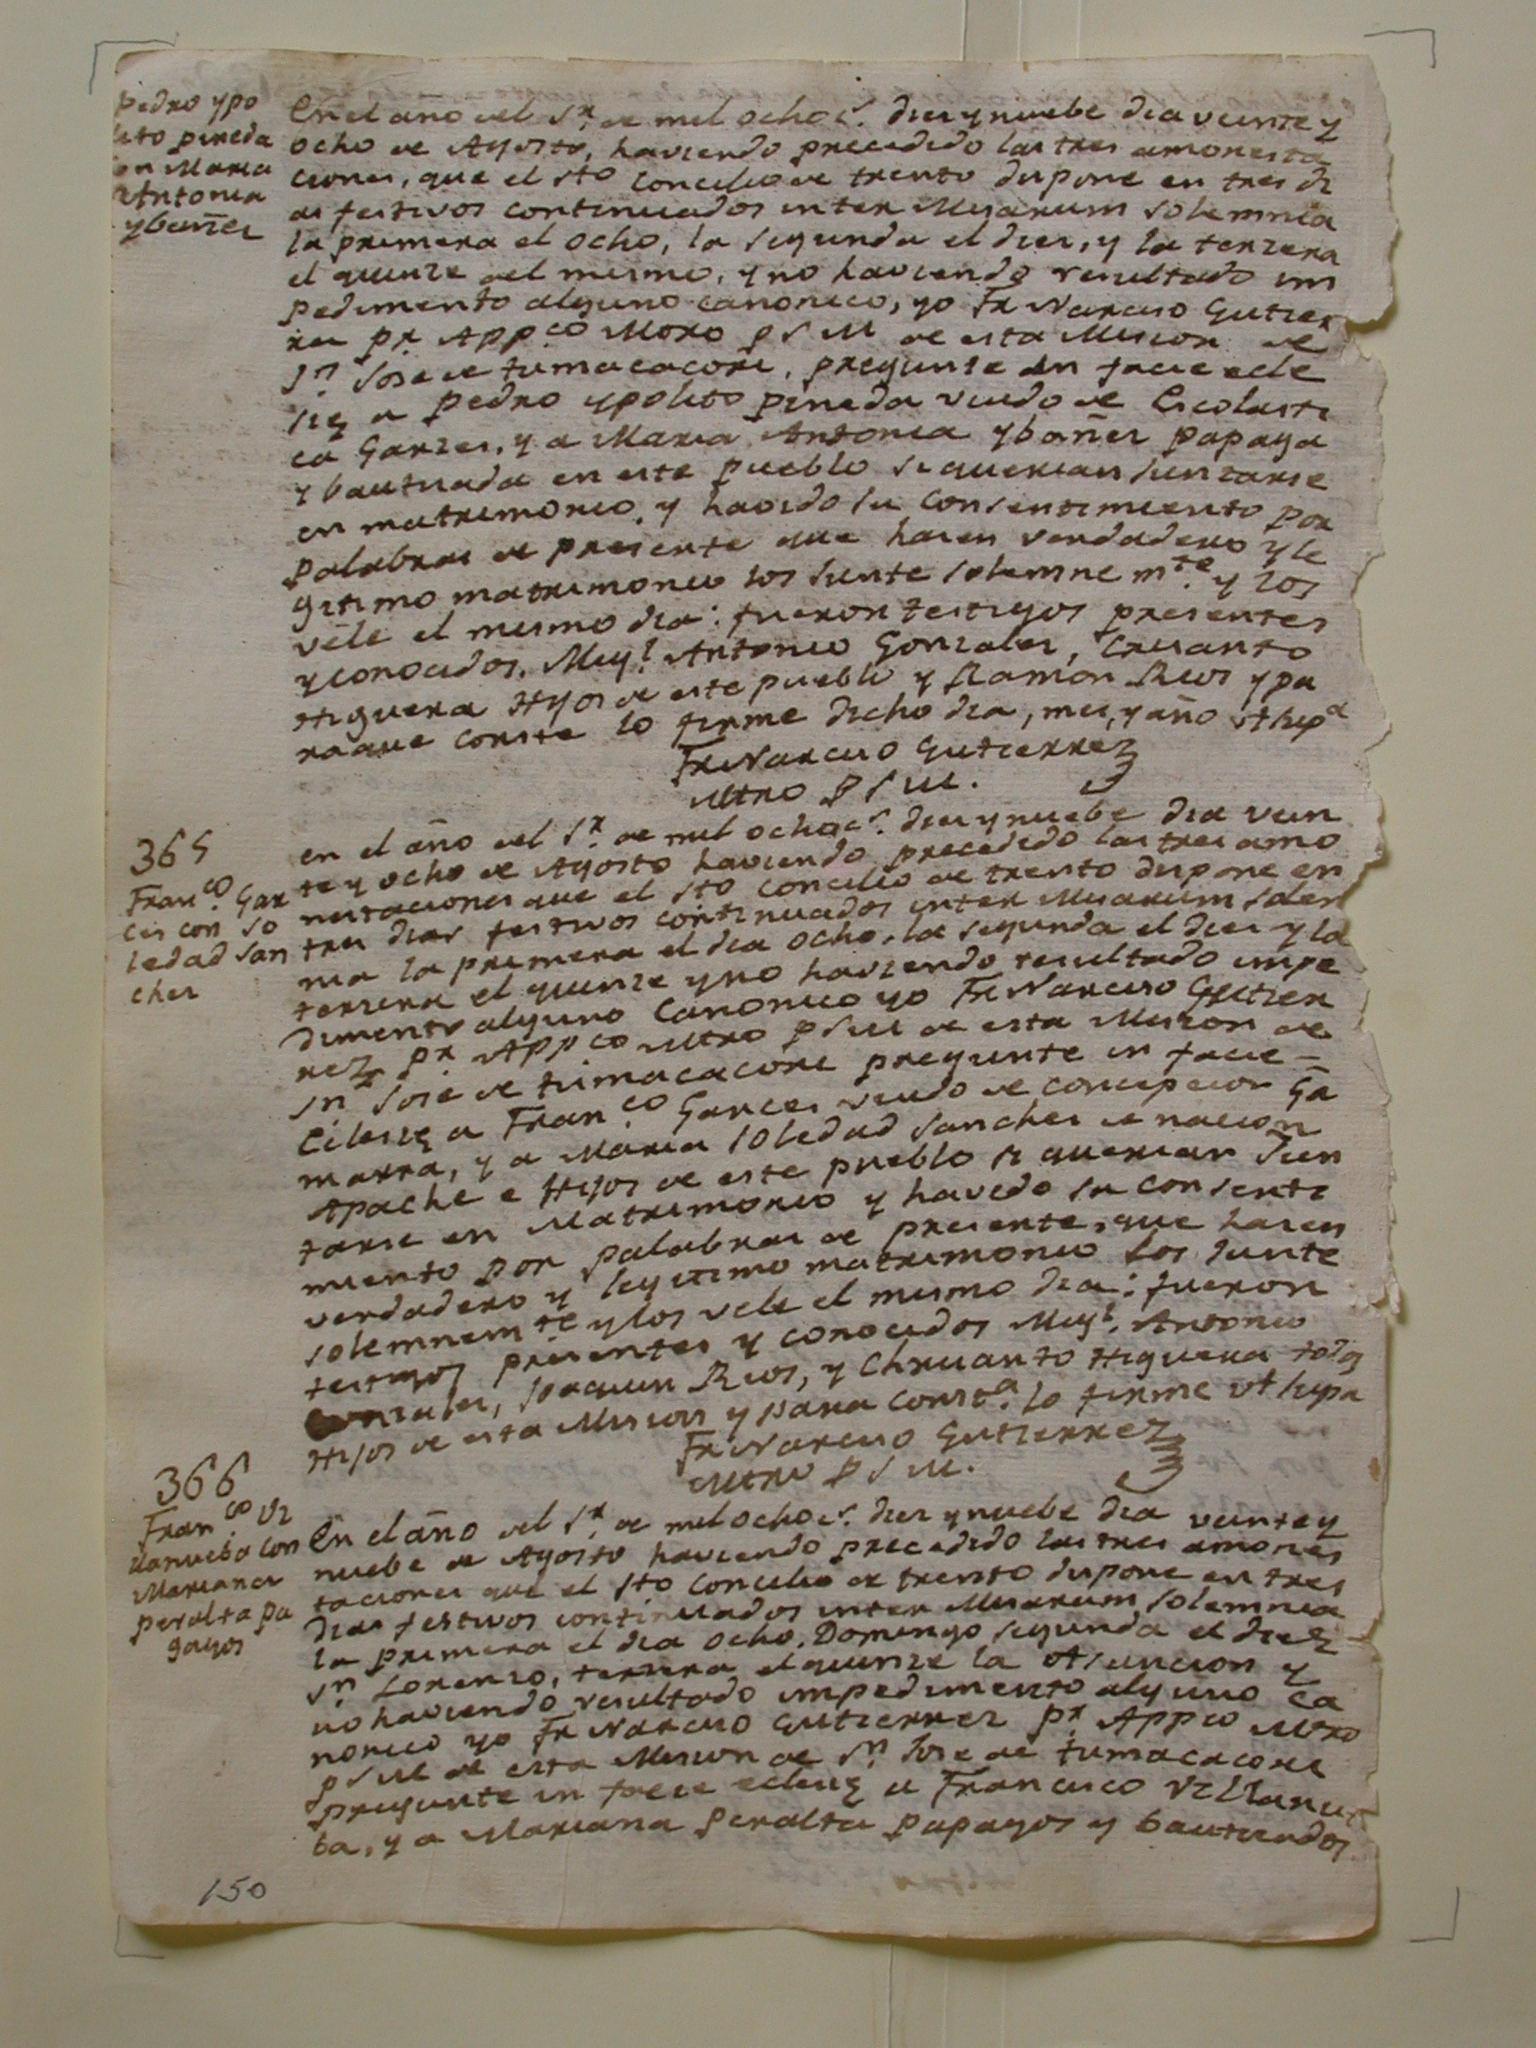 Pedro ypo
lito pineda
con Maria
Antonia
ybañez
En el año del Sr. de mil ochocs. diez y nuebe dia veinte y
ocho de Agosto, haviendo precedido las tres amonesta
ciones, que el Sto Concilio de trento dispone en tres di
as festivos continuados inter Misarum solemnia
la primera el ocho, la segunda el diez, y la terzera
el quinze del mismo, y no haviendo resultado im
pedimento alguno canonico, yo Fr Narciso Gutier
rez pr. Appco Mtro P S M de esta Mision de
Sn Jose de tumacacori, pregunte in facie ecle
się a Pedro ypolito pineda viudo de Escolasti
ca Garzes, y a Maria Antonia ybañez papaga
y bautizada en este pueblo si querian juntarse
en matrimonio, y havido su consentimiento por
palabras de presente que hazen verdadero y le
gitimo matrimonio los junte solemne mte. y los
vele el mismo dia: fueron testigos presentes
y conocidos, Migl. Antonio Gonzales, Crisanto
Higuera Hijos de este pueblo y Ramon Rios y pa
ra que conste lo firme dicho dia, mes, y año ut supa
Fr Narciso Gutierrez
Mtro P S M.
365
Franco. Gar
ces con So
ledad San
chez
en el año del Sr. de mil ochocs. diez y nuebe dia vein
te y ocho de Agosto haviendo precedido las tres amo
nestaciones que el Sto Concilio de trento dispone en
tres dias festivos continuados inter Misarum solem
nia la primera el dia ocho, la segunda el diez y la
terzera el quinze y no haviendo resultado impe
dimento alguno Canonico yo Fr Narciso Gutier
rez pr Appco Mtro P S M de esta Mision de
Sn Jose de tumacacori pregunte in facie =
Eclesię a Franco. Garces viudo de concepcion Ga
marra, y a Maria Soledad Sanches de nacion
Apache e Hijos de este pueblo si querian Jun
tarse en Matrimonio y havido su consenti
miento por palabras de presente, que hazen
verdadero y legitimo matrimonio los junte
solemnemte y los vele el mismo dia: fueron
testigos presentes y conocidos Migl. Antonio
Gonzales, Joaquin Rios, y Chrisanto Higuera todos
Hijos de esta Mision y para consta. lo firme ut supa
Fr Narciso Gutierrez
Mtro P S M.
366
Franco. Vi
llanueba con
Mariana
peralta pa
pagos
En el año del Sr. de mil ochocs. diez y nuebe dia veinte y
nuebe de Agosto haviendo precedido las tres amones
taciones que el Sto Concilio de trento dispone en tres
dias festivos continuados inter Misarum solemnia
la primera el dia ocho, Domingo segunda el diez
Sn Lorenzo, terzera el quinze la Asuncion y
no haviendo resultado impedimento alguno ca
nonico yo Fr Narciso Gutierrez pr Appco Mtro
P S M de esta Mision de Sn. Jose de tumacacori
pregunte in facie eclesię a Francisco Villanue
ba, y a Mariana Peralta papagos y bautizados
150